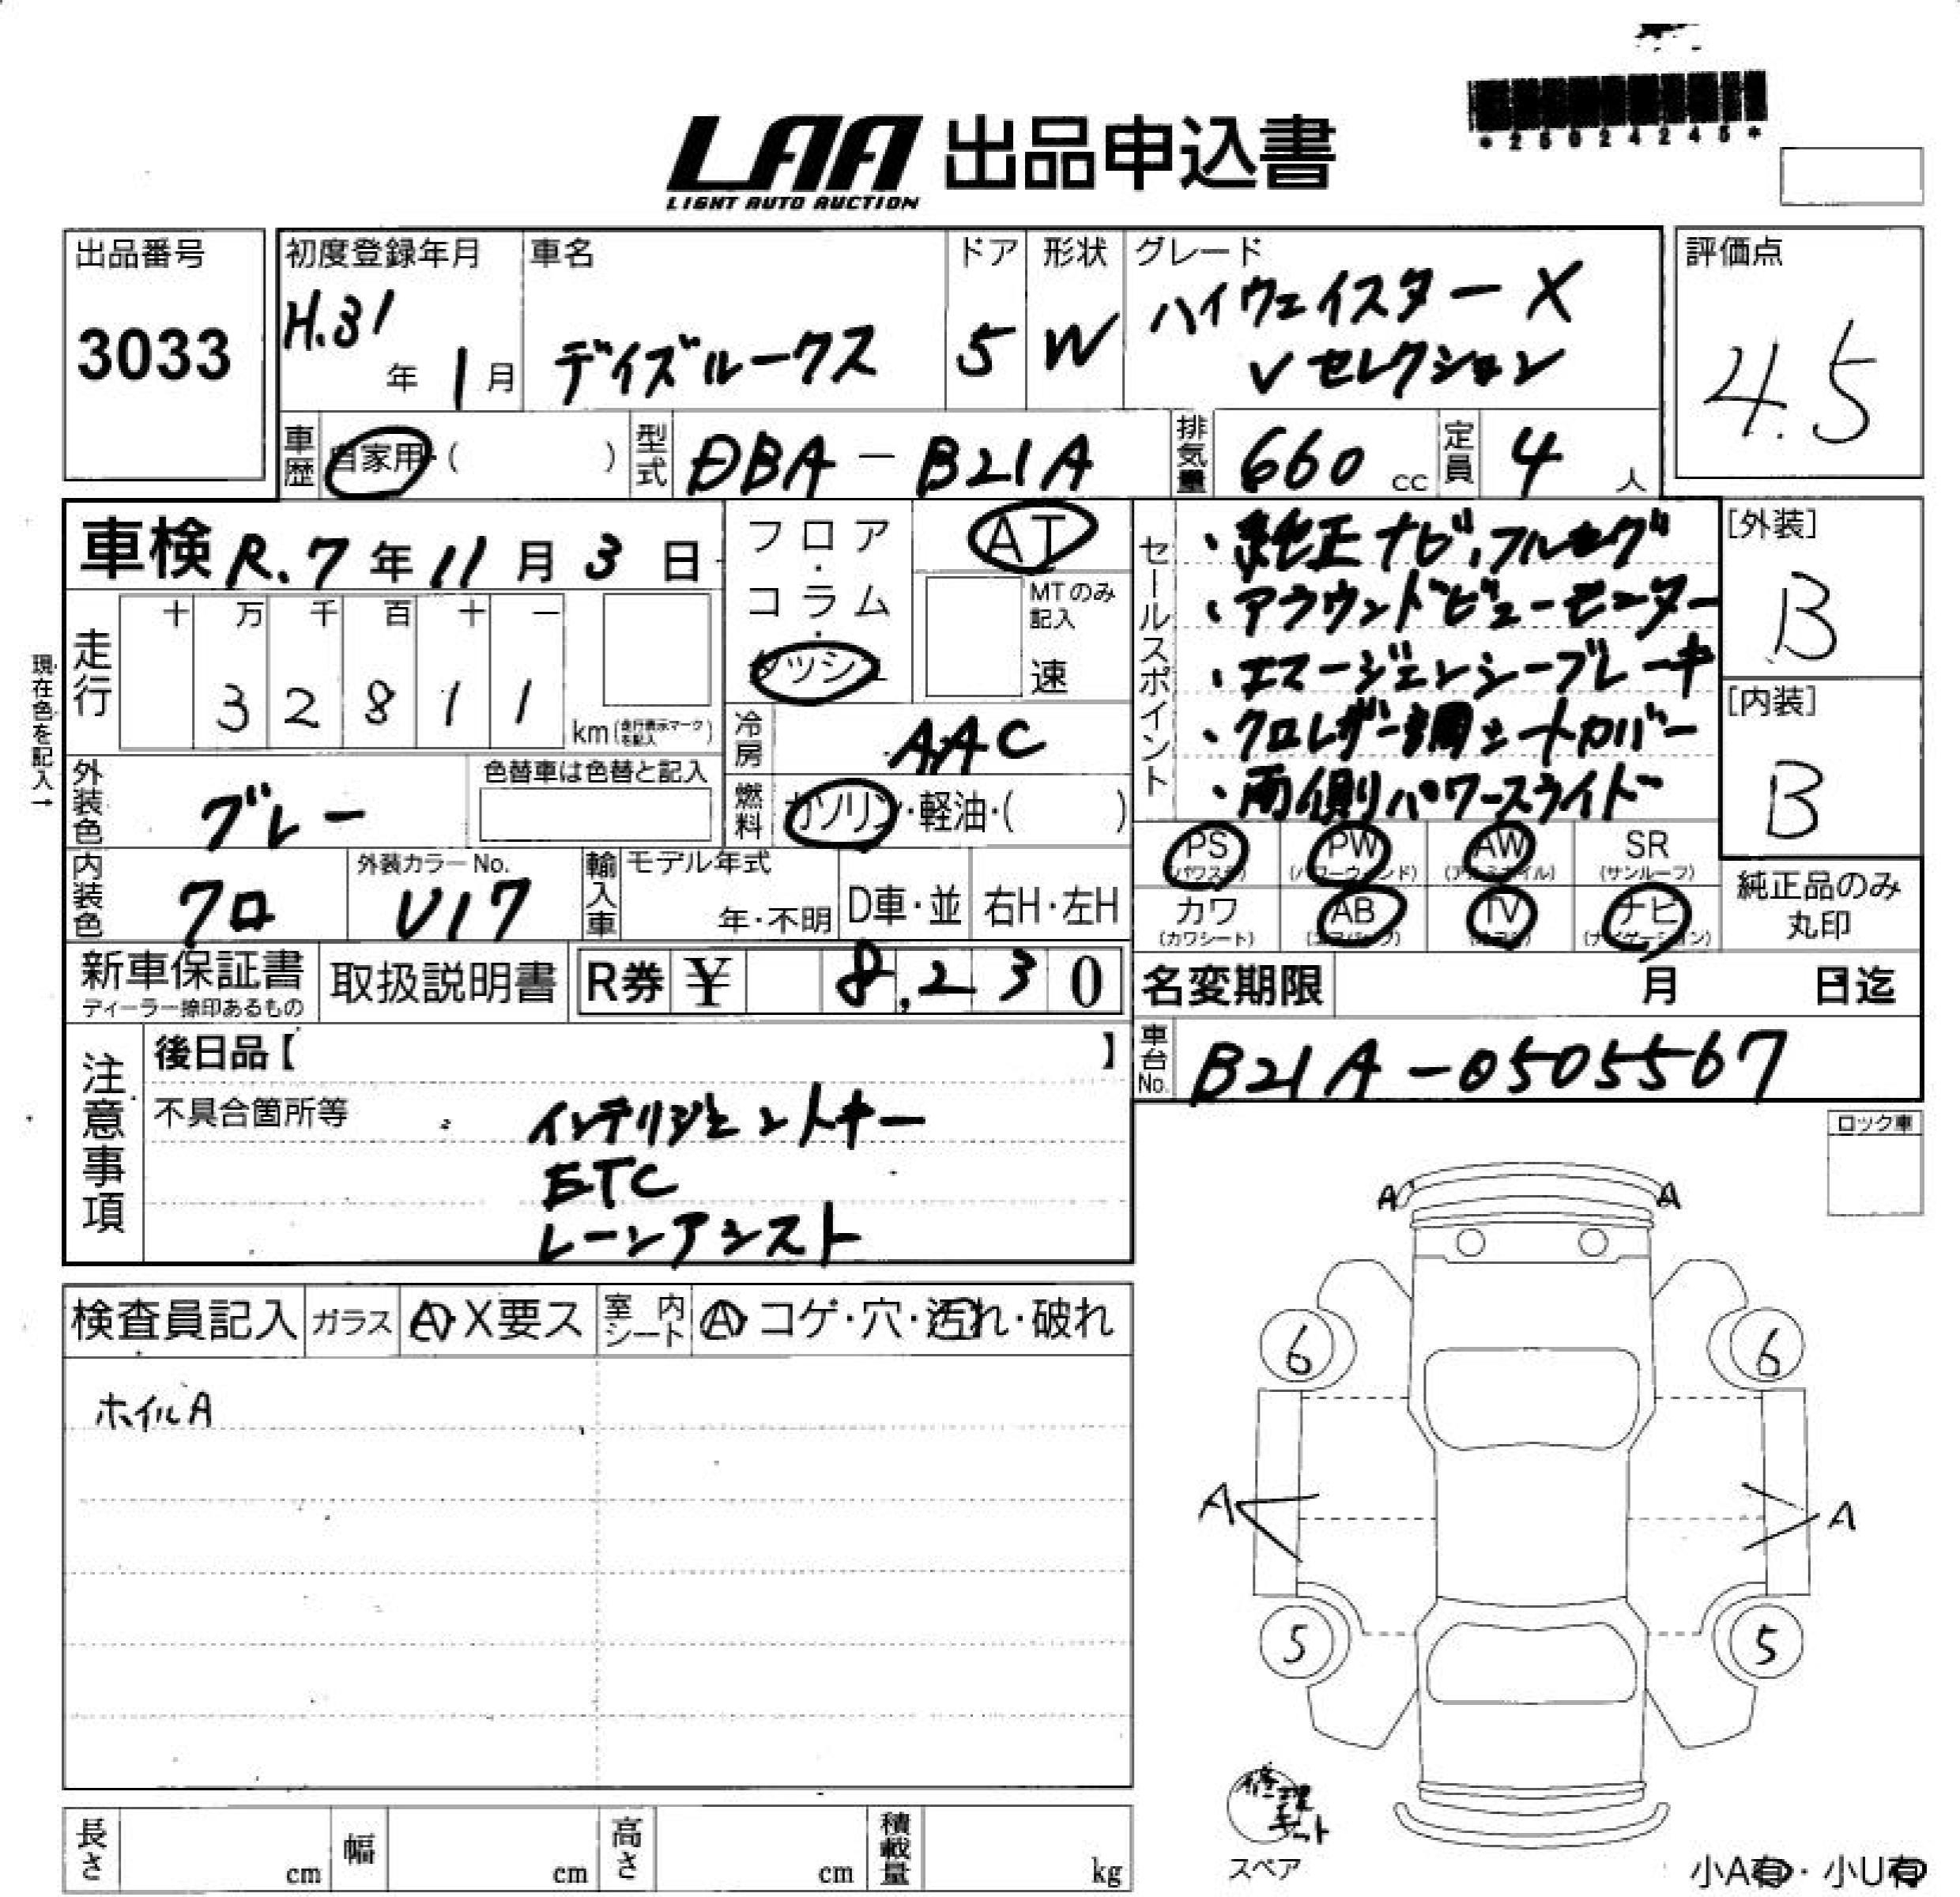 *25024245*
LAA 出品申込書
LIGHT AUTO AUCTION
出品番号
3033
初度登録年月
H.31年 1月
車名
デイズルークス
ドア
5
形状
W
グレード
ハイウェイスターX
Vセレクション
評価点
4.5
車歴 自家用・( )
型式 DBA-B21A
排気量 660 cc
定員 4 人
車検 R.7年 11月 3日
フロア・コラム・ダッシュ
AT
MTのみ記入
速
走行
十 万 千 百 十 一
3 2 8 1 1 km (走行表示マークを記入)
現在色を記入→
冷房 AAC
外装色 グレー
色替車は色替と記入
燃料 ガソリン・軽油・( )
内装色 クロ
外装カラーNo.
U17
輸入車 モデル年式
年・不明 D車・並 右H・左H
セールスポイント
・純正ナビ,フルセグ
・アラウンドビューモニター
・エマージェンシーブレーキ
・クロレザー調シートカバー
・両側パワースライド
[外装]
B
[内装]
B
PS (パワステ) PW (パワーウィンド) AW (アルミホイル) SR (サンルーフ)
カワ (カワシート) AB (エアバッグ) TV (テレビ) ナビ (ナビゲーション)
純正品のみ丸印
新車保証書
ディーラー捺印あるもの
取扱説明書
R券 ¥ 8,230
名変期限 月 日迄
車台No. B21A-0505567
注意事項
後日品【 】
不具合箇所等
インテリジェントキー
ETC
レーンアシスト
ロック車
検査員記入 ガラス A・X要ス 室内シート A・コゲ・穴・汚れ・破れ
ホイルA
A A
6 6
A A
5 5
修理キット
スペア
小A有・小U有
長さ cm 幅 cm 高さ cm 積載量 kg